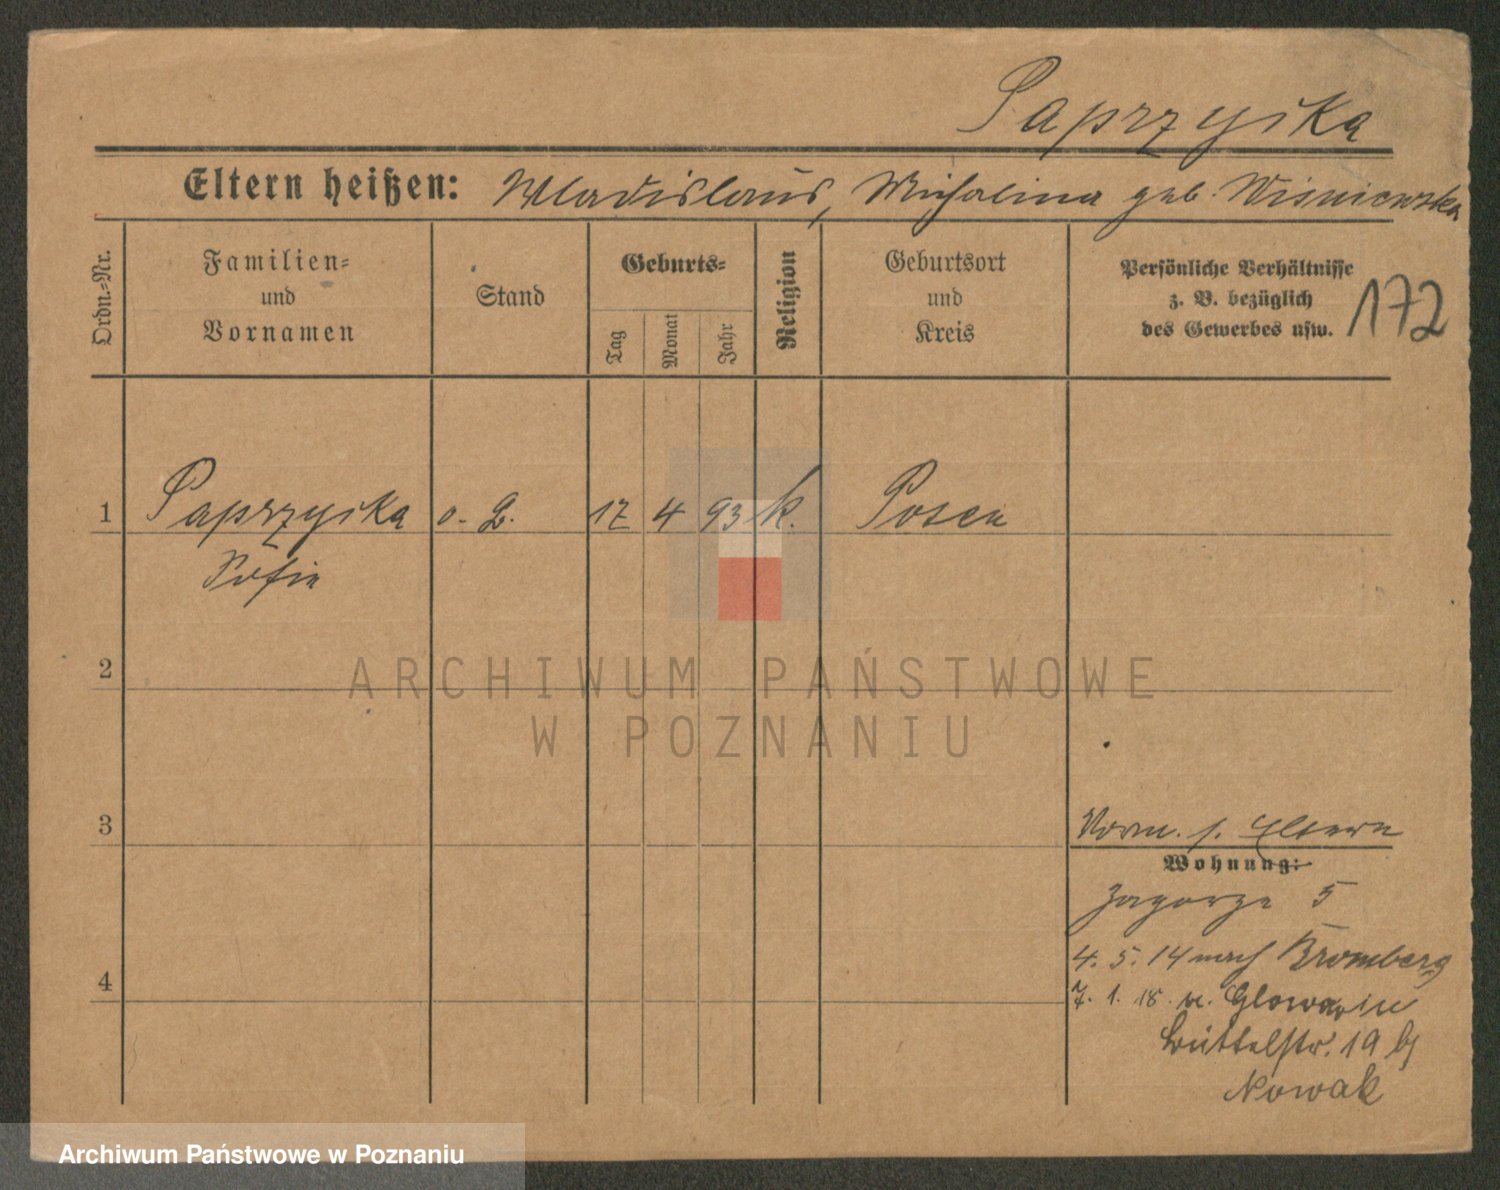 Paprzyska
Eltern heißen: Wladislaus, Michalina geb. Wisniewska
Ordn.-Nr.
Familien-
und
Vornamen
Stand
Geburts-
Tag
Monat
Jahr
Religion
Geburtsort
und
Kreis
Persönliche Verhältnisse
z. B. bezüglich
des Gewerbes usw.
172
1 Paprzyska o. G. 17 4 93 k. Posen
Sofie
2
ARCHIWUM PAŃSTWOWE
W POZNANIU
3
Vorm. s. Eltern
Wohnung:
Zagorze 5
4. 5. 14 nach Bromberg
4
7. 1. 18 Glowno
Büttelstr. 19 bj
Nowak
Archiwum Państwowe w Poznaniu